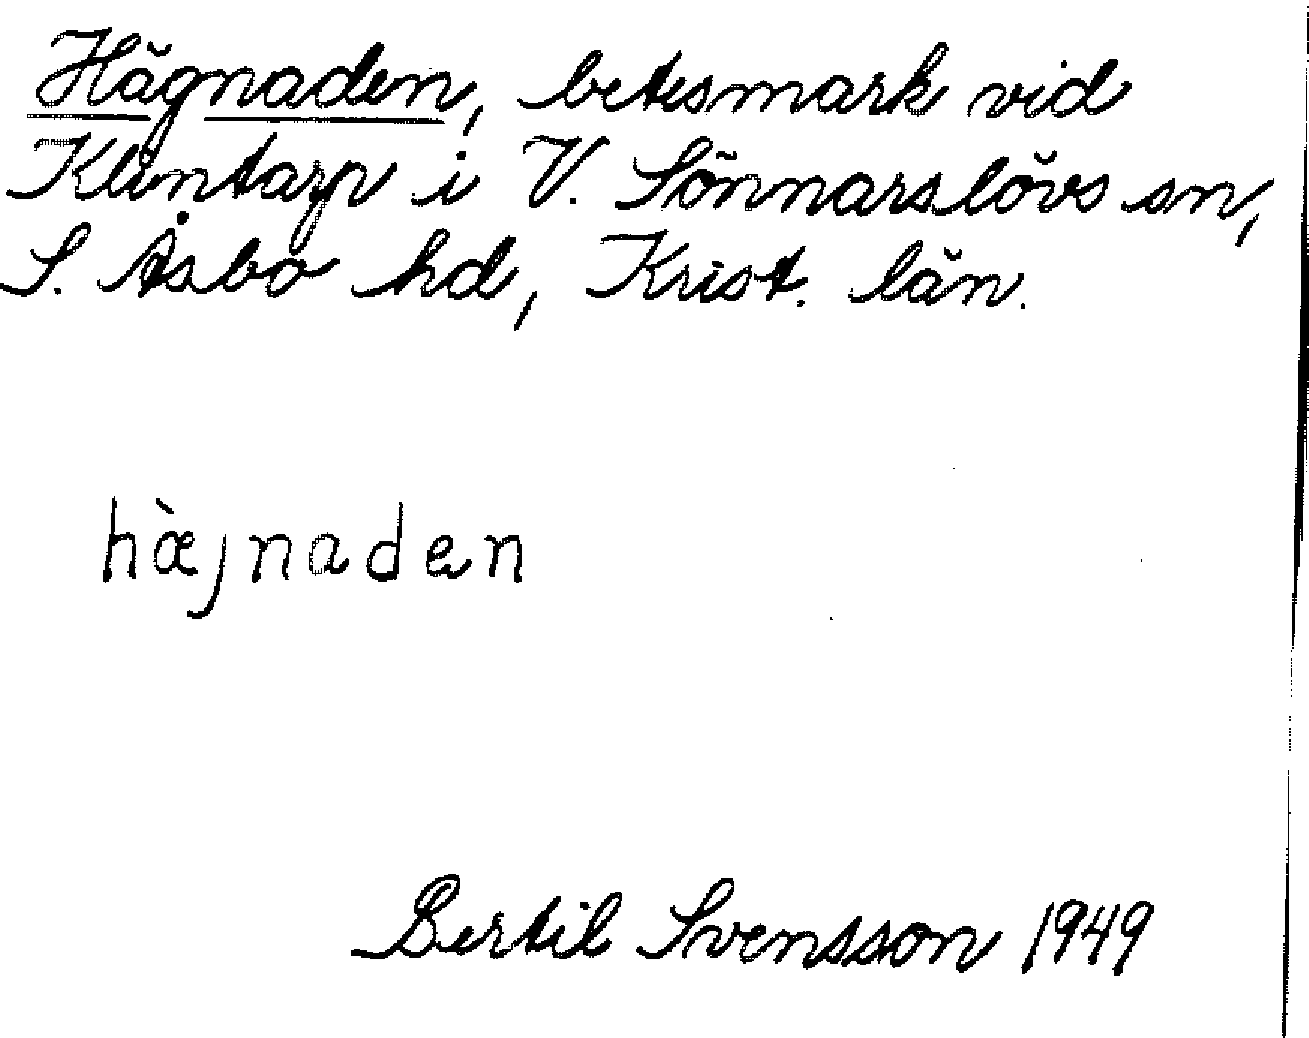 Hägnaden, betesmark vid
Klintarp i V. Sönnarslövs sn,
S. Åsbo hd, Krist. län.
hæ̀jnaden
Bertil Svensson 1949